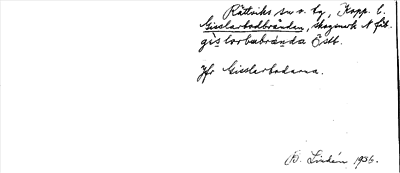 Rättviks sn o. tg, Kopp. l.
Gisslarbodbränden, skogsmark N fäb.
gi̇slarbubrända Östb.
Jfr Gisslarbodarna.
B. Lindén 1936.